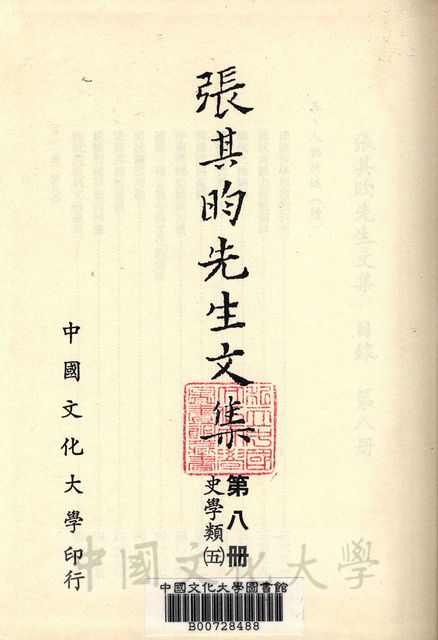 張其昀先生文集
第八冊
史學類(五)
中國文化大學印行
中國文化大學
中國文化大學圖書館
B00728488